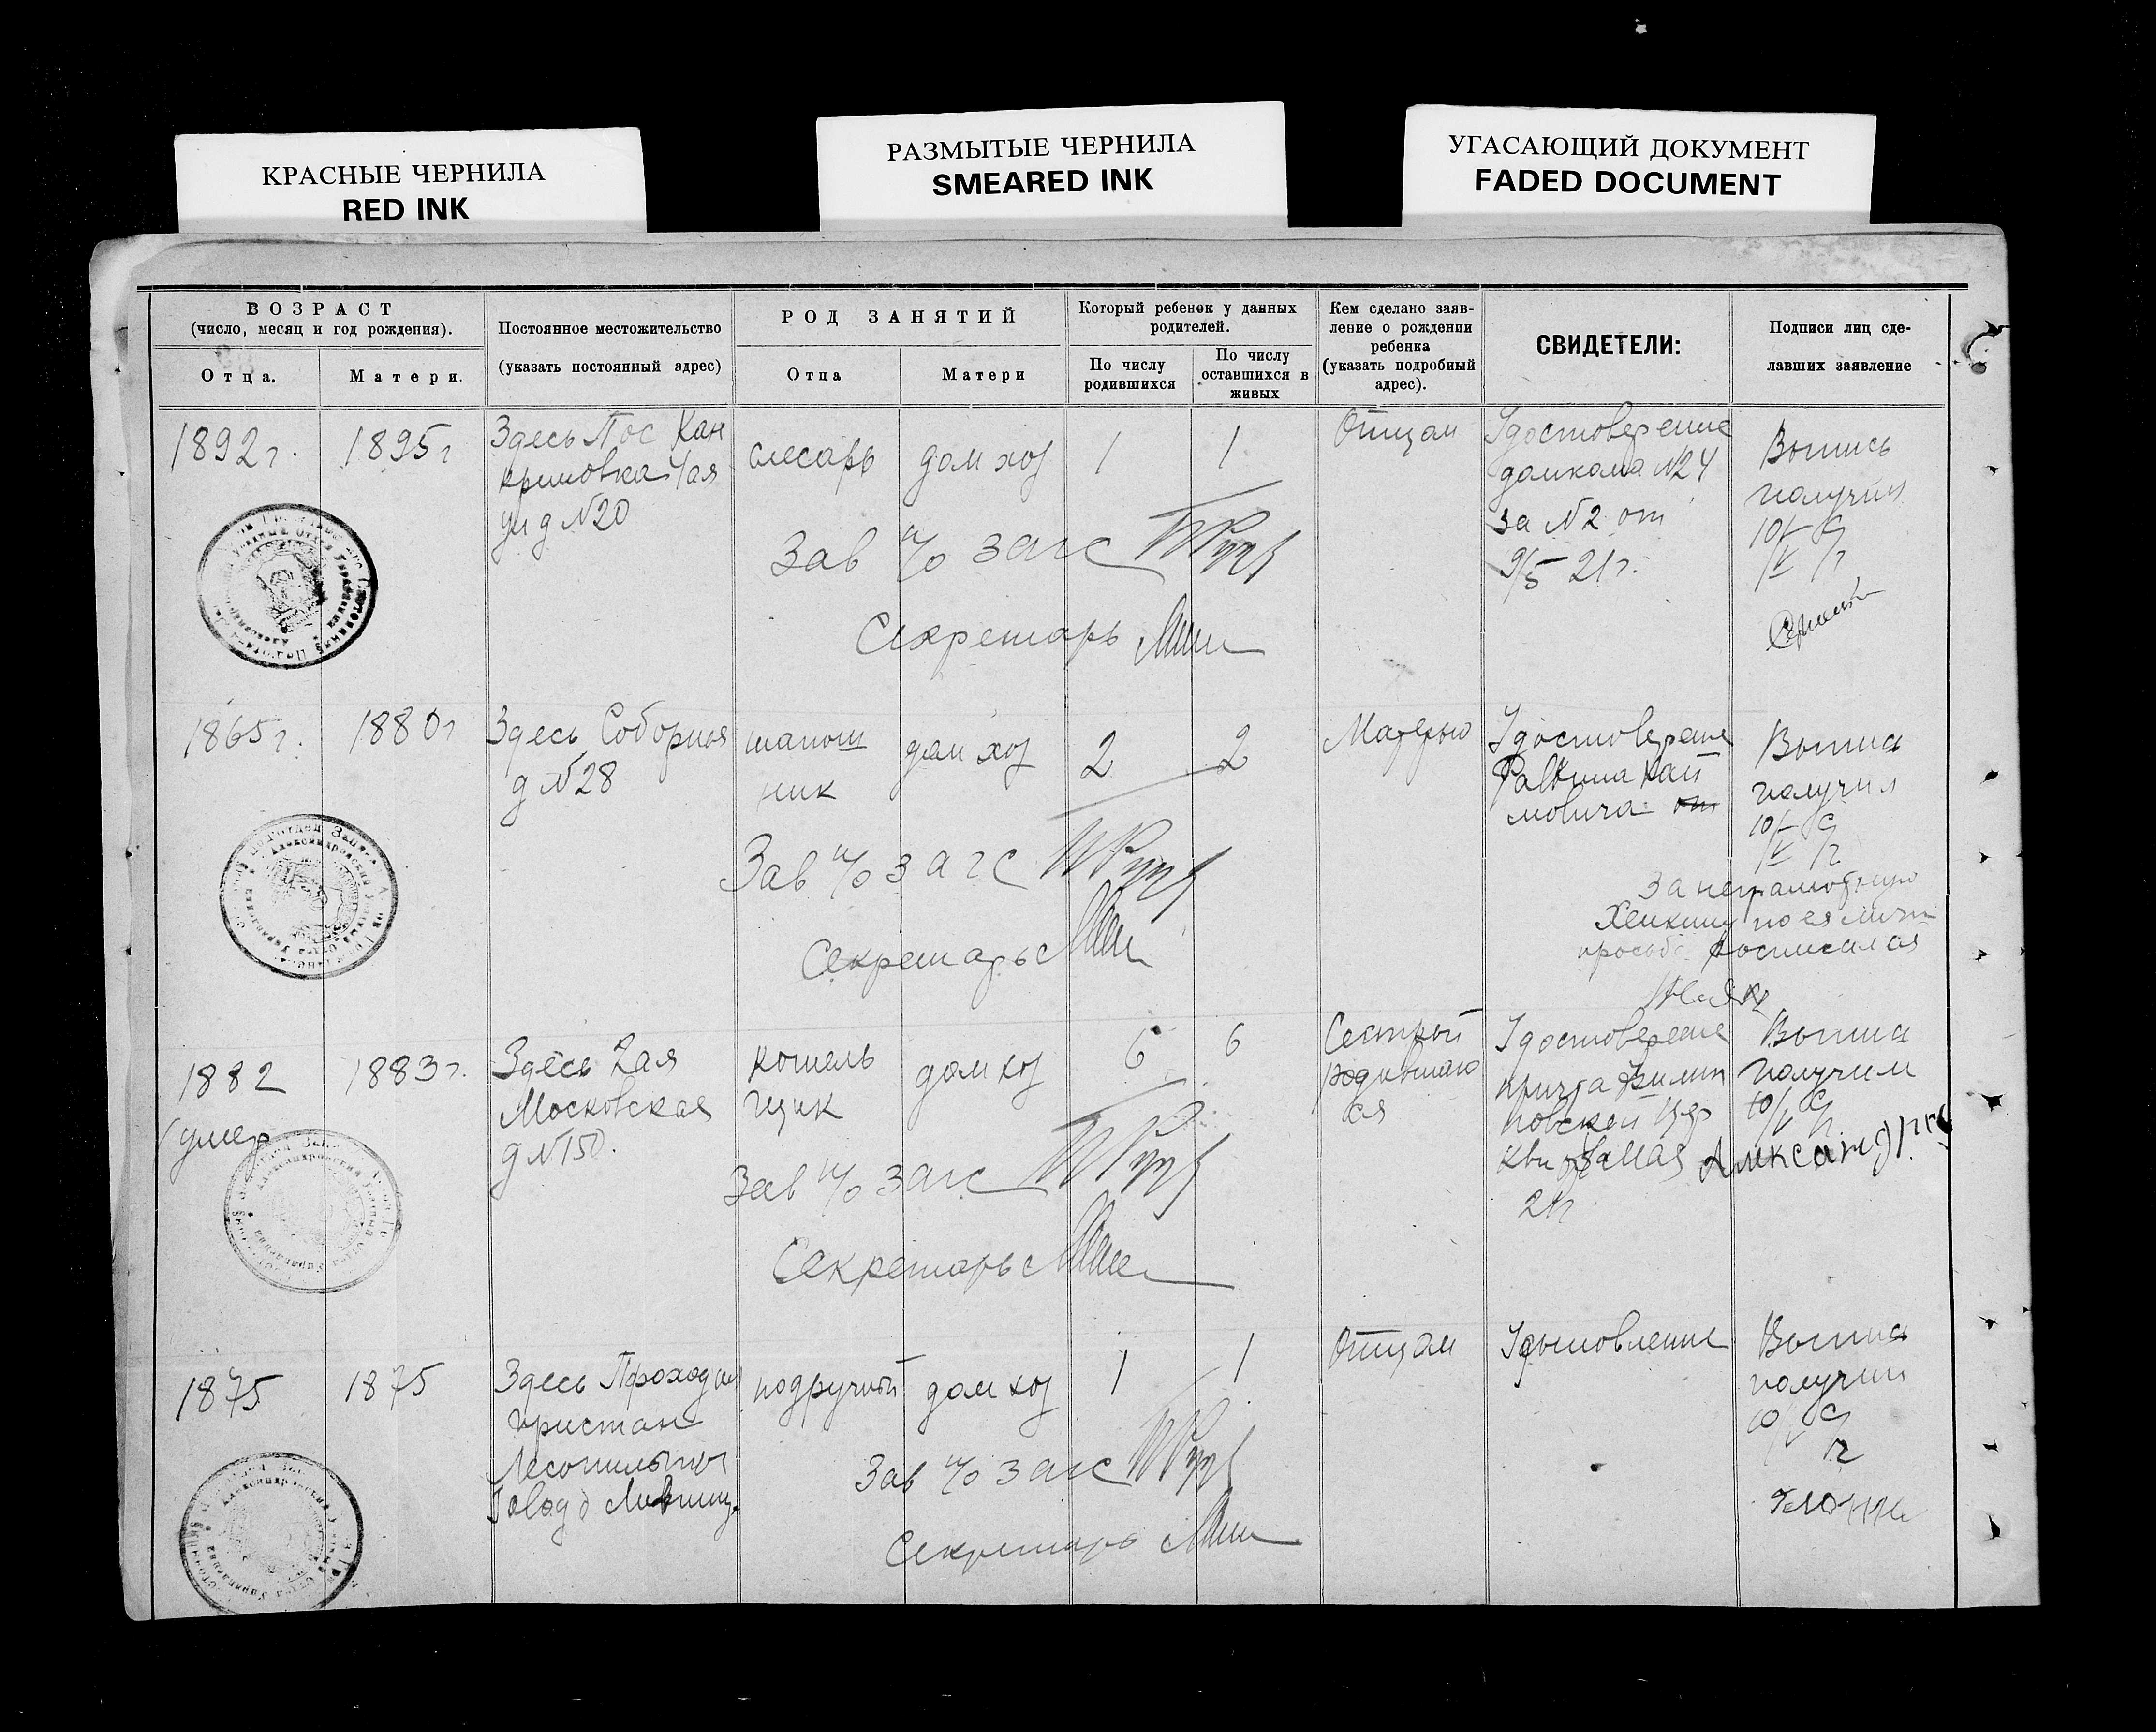 КРАСНЫЕ ЧЕРНИЛА
RED INK
РАЗМЫТЫЕ ЧЕРНИЛА
SMEARED INK
УГАСАЮЩИЙ ДОКУМЕНТ
FADED DOCUMENT
ВОЗРАСТ
(число, месяц и год рождения).
Отца.
Матери.
Постоянное местожительство
(указать постоянный адрес)
РОД ЗАНЯТИЙ
Отца
Матери
Который ребенок у данных
родителей.
По числу
родившихся
По числу
оставшихся в
живых
Кем сделано заяв-
ление о рождении
ребенка
(указать подробный
адрес).
СВИДЕТЕЛИ:
Подписи лиц сде-
лавших заявление
1892 г.
1895 г
Здесь Пос Кан
криновка 4ая
ул д №20
слесарь
дом хоз
1
1
Отцом
Удостоверение
домкома №24
за №2 от
9/5 21 г.
Выпись
получил
10/V
Зав п/о загс
Секретарь
1865 г.
1880 г
Здесь Соборная
д №28
шапош
ник
дом хоз
2
2
Матерью
Удостоверение
Раввина Хай
мовича
Выпись
получил
10/V
За неграмотную
Хейкину по ея личн
просьбе росписалась
Зав п/о загс
Секретарь
1882
умер
1883 г.
Здесь 2ая
Московская
д №150.
кошель
щик
дом хоз
6
6
Сестрой
родившаго
ся
Удостоверение
причта Филип
повской Цер
кви
мая
21 г
Выпись
получил
10/V
Зав п/о загс
Секретарь
1875
1875
Здесь Проходная
пристань
Лесопильный
завод
подручный
дом хоз
1
1
Отцом
Выпись
получил
10/V
Зав п/о загс
Секретарь